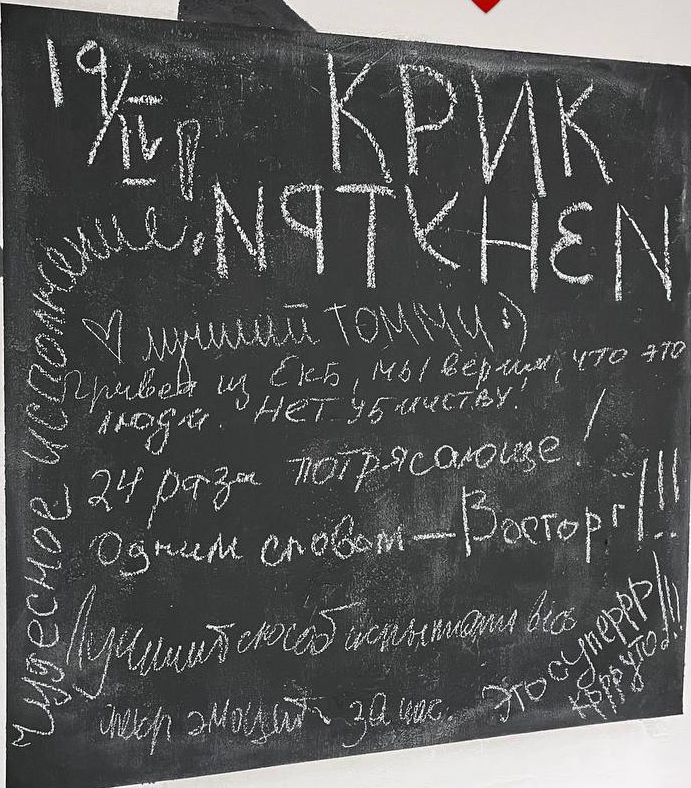 19/IV
КРИК
NꟼTKHƐN
Чудесное исполнение.
♡ лучший ТОММИ :)
Привет из ЕКБ, мы верим, что это
люди. НЕТ УБийству!
24 раза потрясающе!
Одним словом — Восторг!!!
Лучший способ испытать весь
за час.
Это суперрр!!!
Крррруто!!!